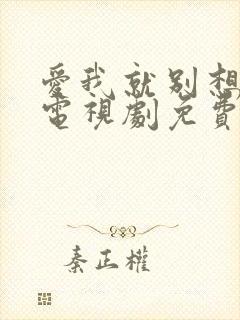 愛我就別想
電視劇免費
秦正權